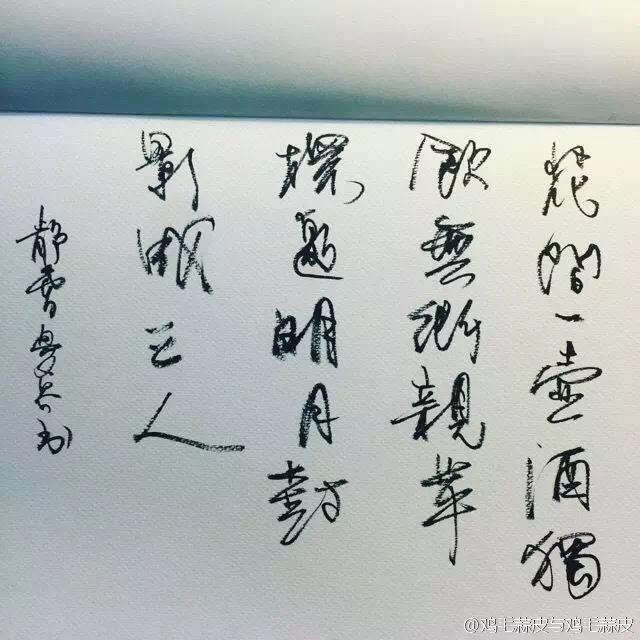 花間一壺酒獨
飲無所親舉
杯邀明月對
影成三人
靜
@鸡毛蒜皮与鸡毛蒜皮